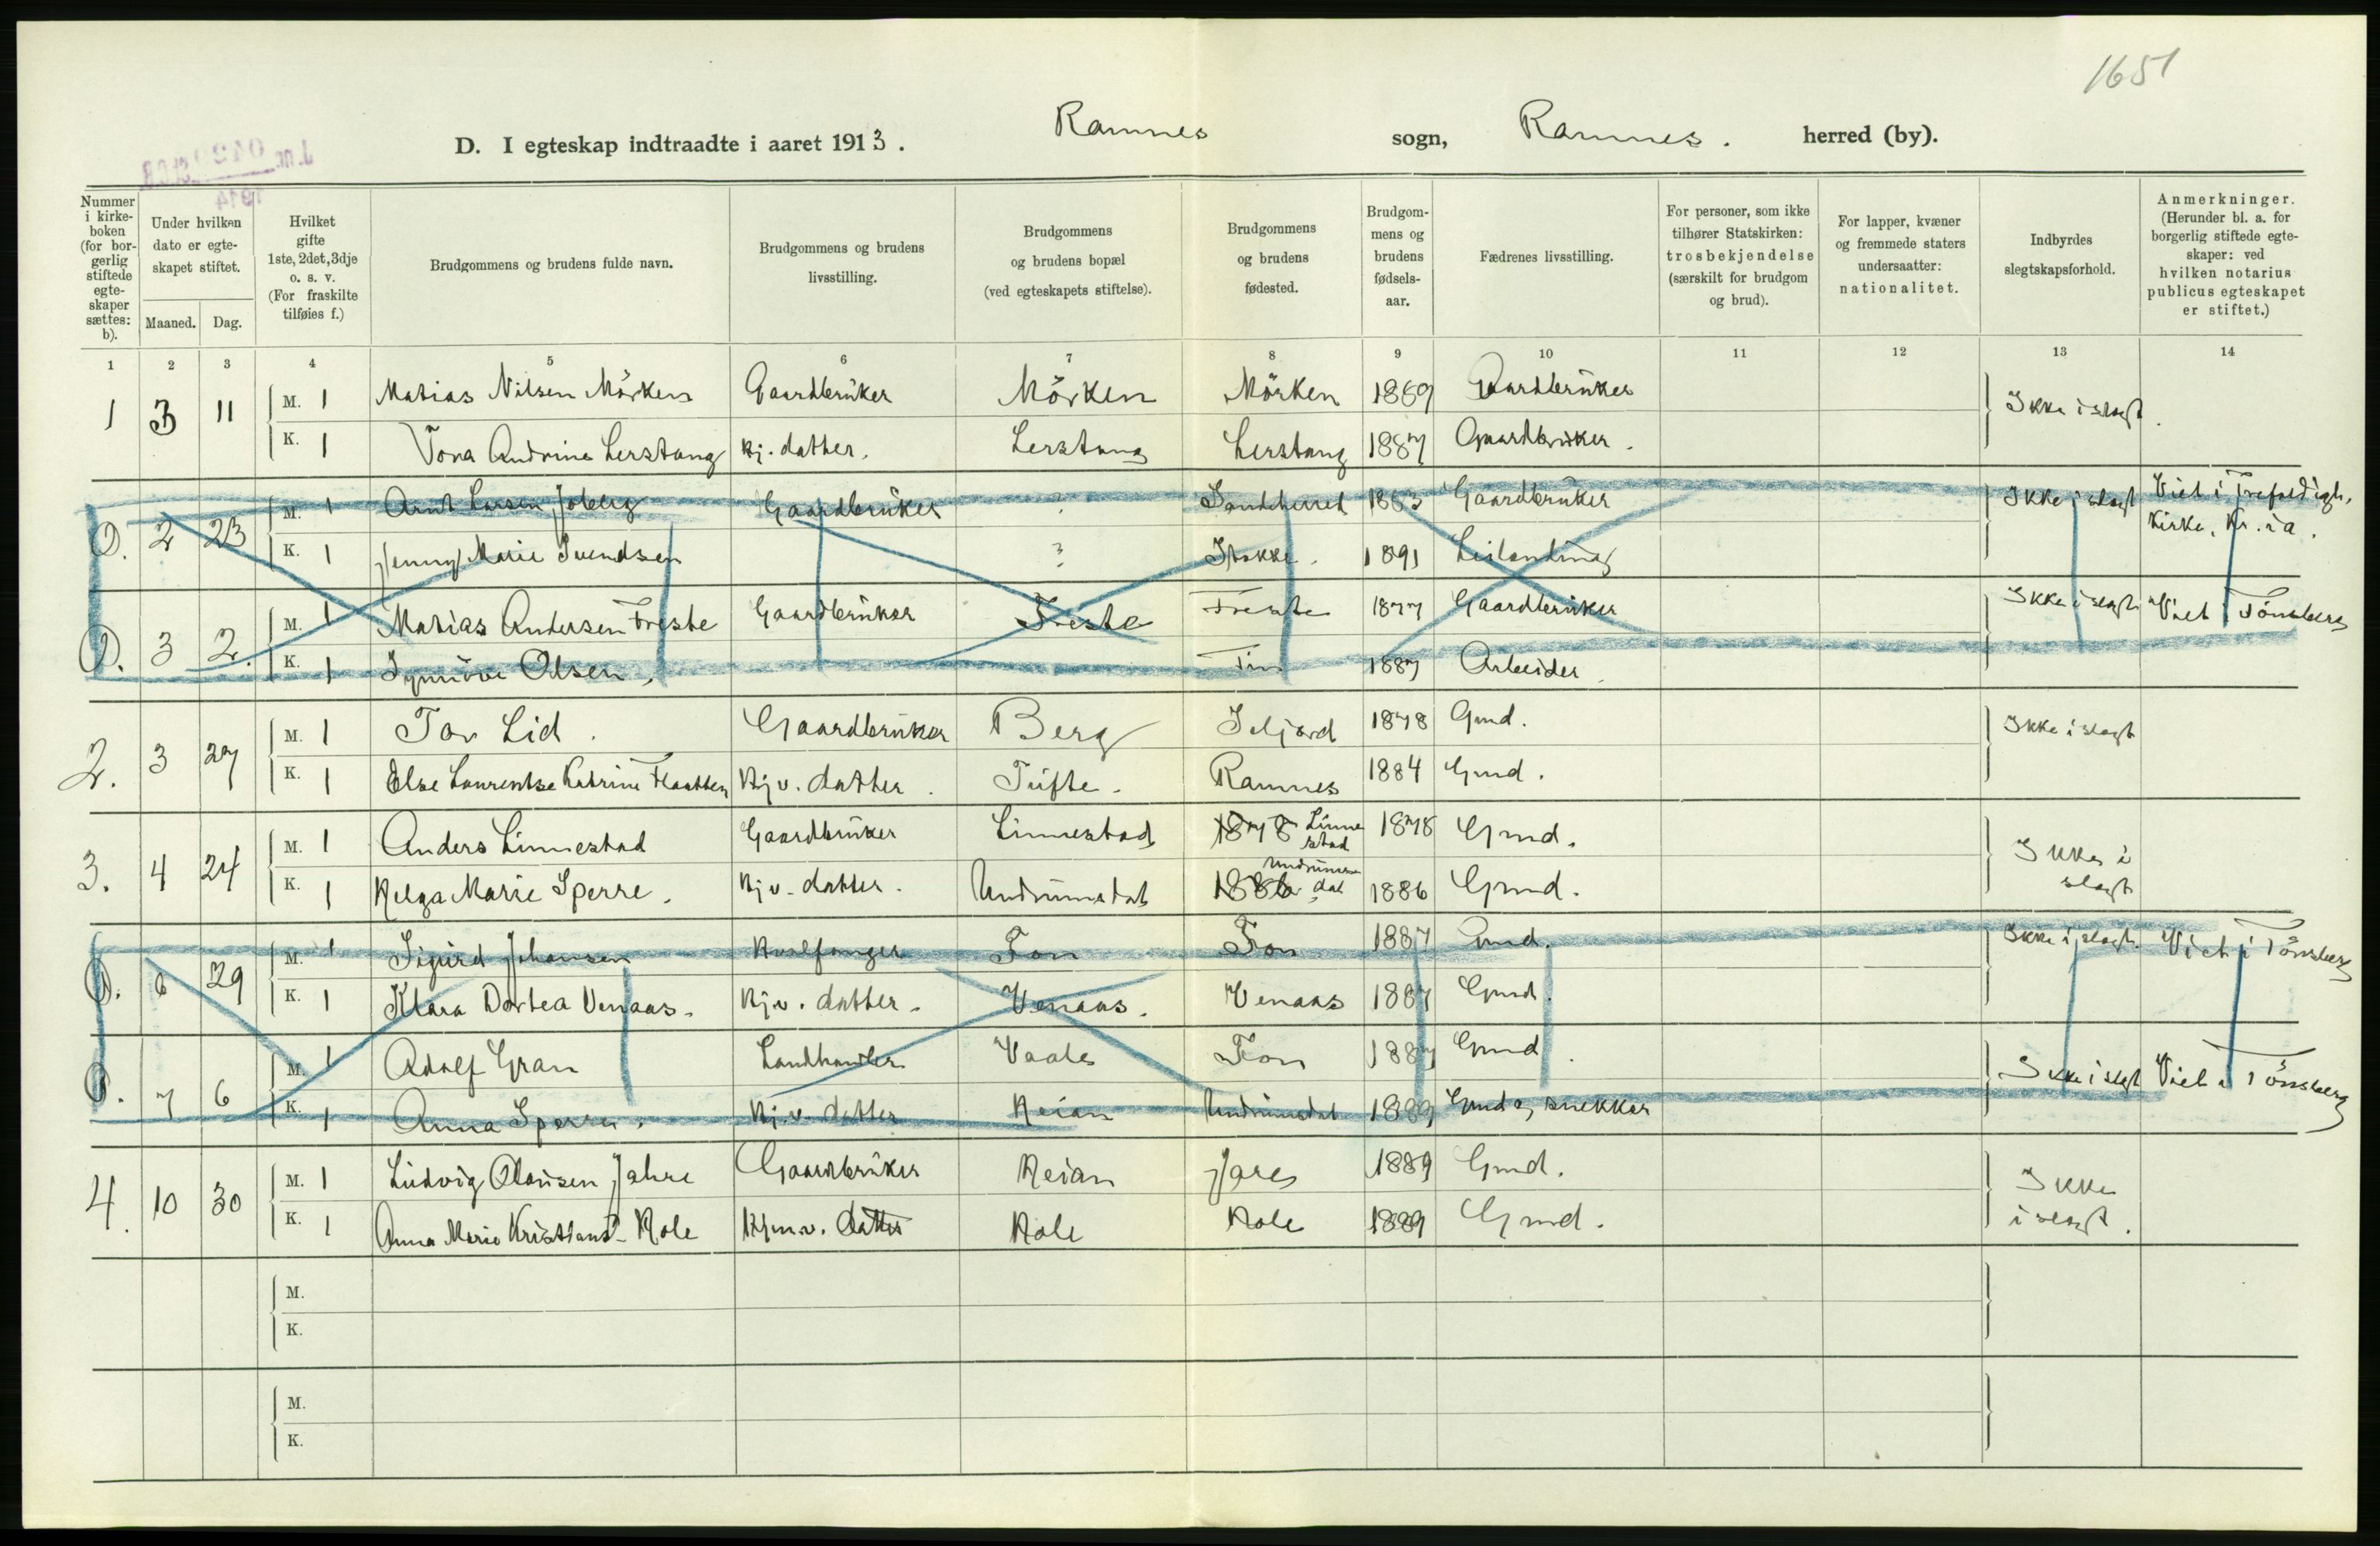 1651
D. I egteskap indtraadte i aaret 1913. Ramnes sogn, Ramnes. herred (by).
J.nr.
1914
Nummer i kirkeboken (for borgerlig stiftede egteskaper sættes: b).
Under hvilken dato er egteskapet stiftet.
Maaned. Dag.
Hvilket gifte 1ste, 2det, 3dje o. s. v. (For fraskilte tilføies f.)
Brudgommens og brudens fulde navn.
Brudgommens og brudens livsstilling.
Brudgommens og brudens bopæl (ved egteskapets stiftelse).
Brudgommens og brudens fødested.
Brudgommens og brudens fødselsaar.
Fædrenes livsstilling.
For personer, som ikke tilhører Statskirken: trosbekjendelse (særskilt for brudgom og brud).
For lapper, kvæner og fremmede staters undersaatter: nationalitet.
Indbyrdes slegtskapsforhold.
Anmerkninger. (Herunder bl. a. for borgerlig stiftede egteskaper: ved hvilken notarius publicus egteskapet er stiftet.)
1 2 3 4 5 6 7 8 9 10 11 12 13 14
1 3 11 M. 1 Matias Nilsen Mörken Gaardbrüker Mörken Mörken 1889 Gaardbrüker Ikke i slegt.
K. 1 Tora Andrine Lerstang Hj. datter. Lerstang Lerstang 1887 Gaardbrüker.
0. 2 23 M. 1 Arnt Larsen Joberg Gaardbrüker ? Sandeherred 1883 Gaardbrüker Ikke i slegt Viet i Trefoldigh. Kirke, Kr.ia.
K. 1 Jenny Marie Svendsen ? Stokke. 1891 Leilending
0. 3 2. M. 1 Matias Andersen Freste Gaardbrüker Freste Freste 1877 Gaardbrüker Ikke i slegt Viet i Tönsberg
K. 1 Synnöve Olsen, Tin 1887 Arbeider.
2. 3 27 M. 1 Tov Lid. Gaardbrüker Berg Seljord 1878 Gmd. Ikke i slegt
K. 1 Else Laurentse Katrine Flaatten Hj v. datter. Tüfte. Ramnes 1884 Gmd.
3. 4 24 M. 1 Anders Linnestad Gaardbrüker Linnestad 1878 Linnestad 1878 Gmd. Ikke i slegt
K. 1 Helga Marie Sperre. Hj v. datter. Undrumsdal 1886 Undrumsdal 1886 Gmd.
0. 6 29 M. 1 Sigurd Johansen Hvalfanger Fon Fon 1887 Gmd. Ikke i slegt. Viet i Tönsberg
K. 1 Klara Dortea Venaas. Hj.v. datter. Venaas. Venaas 1887 Gmd.
0. 7 6 M. 1 Adolf Gran Landhandler Vaale Fon 1887 Gmd. Ikke i slegt Viet i Tönsberg
K. 1 Anna Sperre. Hj.v. datter Heian Undrumsdal 1889 Gmd og snekker
4. 10 30 M. 1 Ludvig Olausen Jahre Gaardbrüker Heian Jare 1889 Gmd. Ikke i slegt.
K. 1 Anna Marie Kristians. Hole Hjm.v. datter Hole Hole 1889 Gmd.
M.
K.
M.
K.